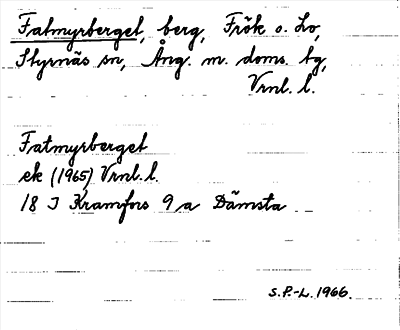 Fatmyrberget, berg, Frök o. Lo,
Styrnäs sn, Ång. m. doms. tg,
Vrnl. l.
Fatmyrberget
ek (1965) Vrnl. l.
18 J Kramfors 9 a Dämsta
S.P.-L. 1966.